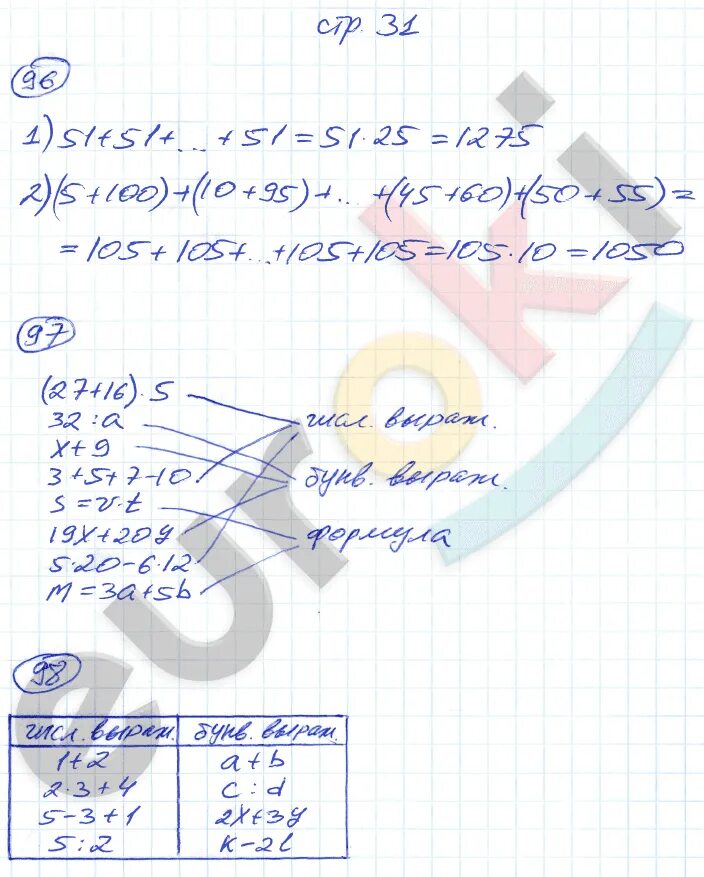 стр. 31
96
1) 51+51+...+51=51·25=1275
2)(5+100)+(10+95)+...+(45+60)+(50+55)=
=105+105+...+105+105=105·10=1050
97
(27+16)·5
32:a
числ. выраж.
x+9
3+5+7-10
букв. выраж.
s=v·t
19x+20y
формула
5·20-6·12
m=3a+5b
98
числ. выраж. букв. выраж.
1+2 a+b
2·3+4 c:d
5-3+1 2x+3y
5:2 k-2l
euroki